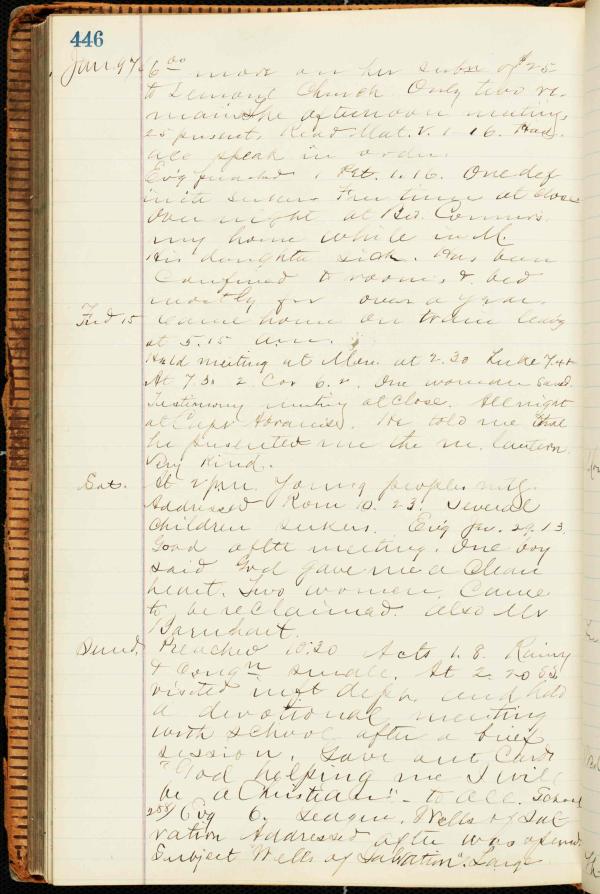 446
Jan 97 6 00 more on her subn of $25
to Church Only two re
mained the afternoon meeting,
25 present. Read Mat. V. 1 16. Had
all speak in order.
Ev'g preached 1 Pet. 1.16. One def
inite seeker. Fine time at close
Over night at Bro. Connors
my home while in M.
His daughter sick. Has been
Confined to room, & bed
mostly for over a year.
Frid 15 Came home on train leavg
at 5.15 a.m.
Held meeting at at 2.30 Luke 7.
At 7.30 2. Cor 6. 2. One woman saved.
Testimony meeting at close. All night
at Capt . He told me that
he presented me the m. lantern.
Very Kind.
Sat. At 2 P.M. Young peoples mtg.
Addressed Rom 10. 23. Several
Children seekers. Ev'g Jer. 29.13.
Good after meeting. One boy
said God gave me a clean
heart. Two women Came
to be reclaimed. also Mr
Barnhart.
Sund. Preached 10:30 Acts 1. 8. Rainy
& Congn small. At 2.20 S.S.
visited inft depa. and held
a devotional meeting
with school after a brief
session. Gave out Cards
"God helping me I will
be a Christian" - to all. School
258/ Evg E. League. Wells of Sal
vation Addressed after was opened.
Subject "Wells of Salvation". Large